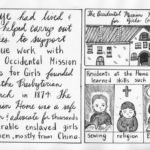 had lived &
helped carry out
to support
work with
Occidental Mission
for Girls founded
the Presbyterian
in 1874. The
Mission Home was a safe
& advocate for thousands
vulnerable enslaved girls
women, mostly from China
The Occidental Mission
for Girls
Residents at the Home
learned skills such
sewing
religion